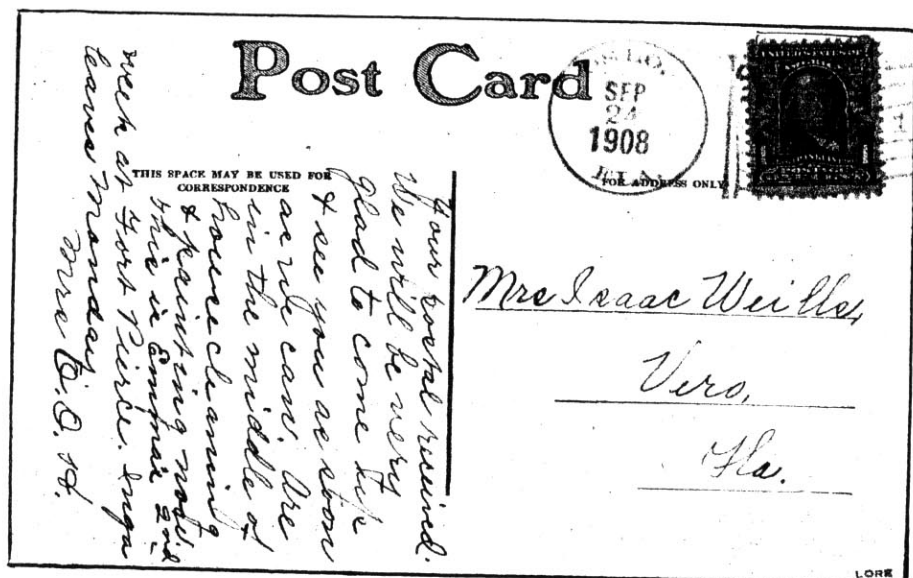 Post Card
SEP
24
1908
FLA.
THIS SPACE MAY BE USED FOR
CORRESPONDENCE
FOR ADDRESS ONLY
Your postal received.
We will be very
glad to come up
& see you as soon
as we can. Are
in the middle of
house cleaning
& painting now.
this is Emma's 2nd
week at Fort Pierce. Inga
leaves Monday
Mrs
Mrs Isaac Weills,
Vero,
Fla.